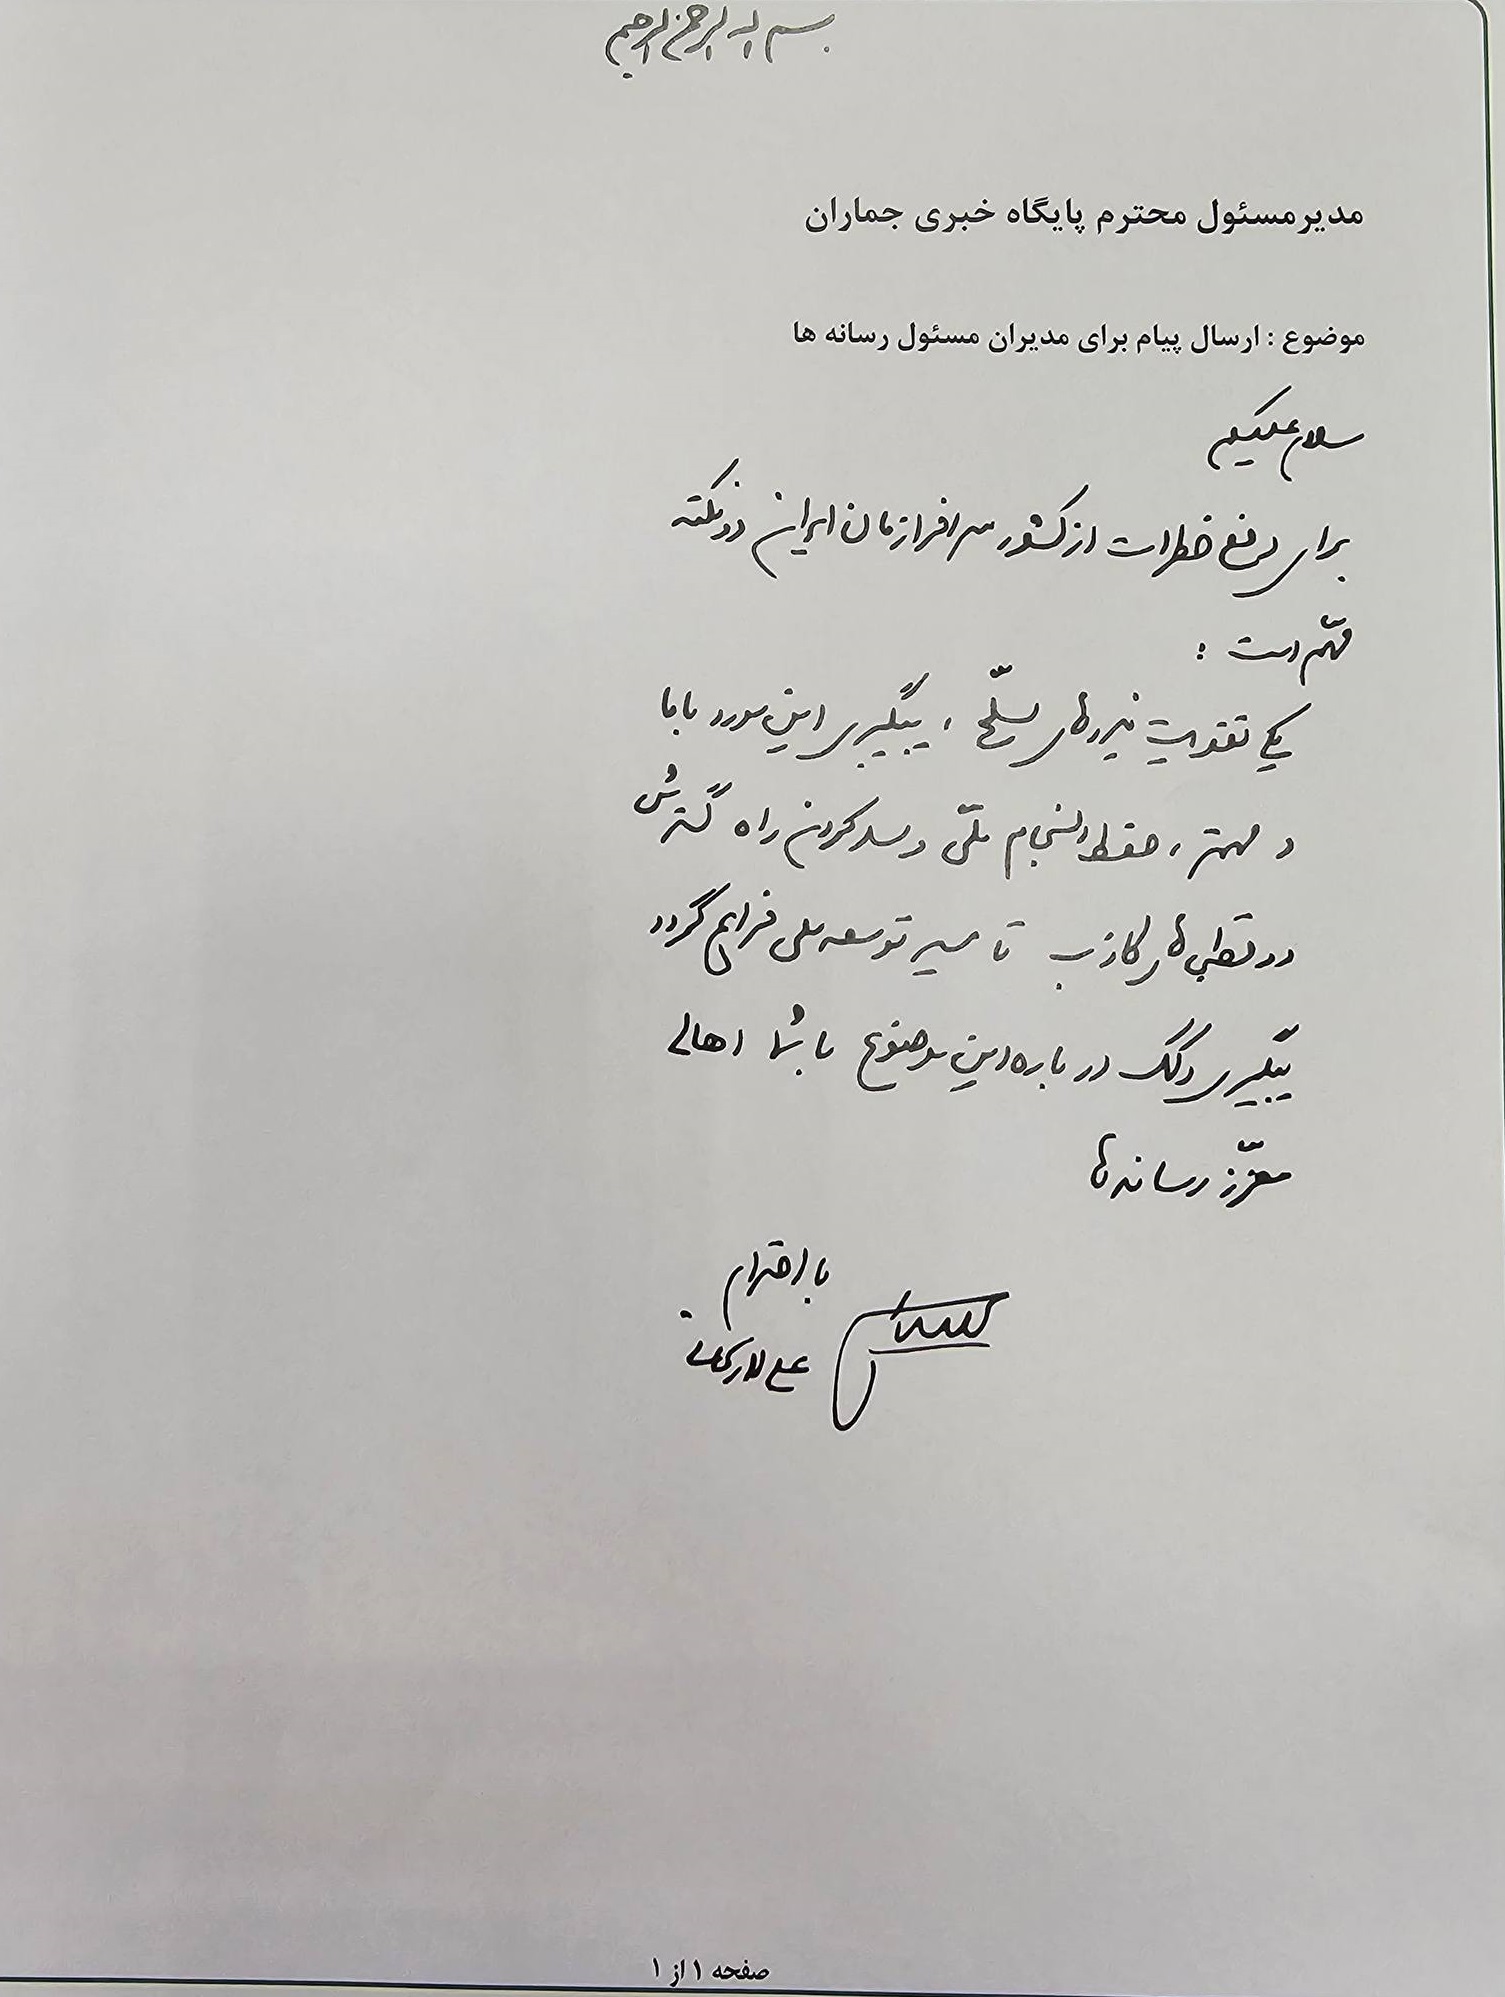 بسم الله الرحمن الرحیم
مدیرمسئول محترم پایگاه خبری جماران
موضوع : ارسال پیام برای مدیران مسئول رسانه ها
سلام علیکم
برای رفع خطرات از کشور سرافرازمان ایران دو نکته
مهّم است :
یکی تقویت نیروهای مسلّح ، پیگیری این مورد با ما
و مهمتر ، حفظ انسجام ملّی و سد کردن راه گسترش
دوقطبی‌های کاذب تا مسیر توسعه ملی فراهم گردد
پیگیری و کمک درباره این موضوع با شما اهالی
معزّز رسانه‌ها
با احترام
علی لاریجانی
صفحه ۱ از ۱